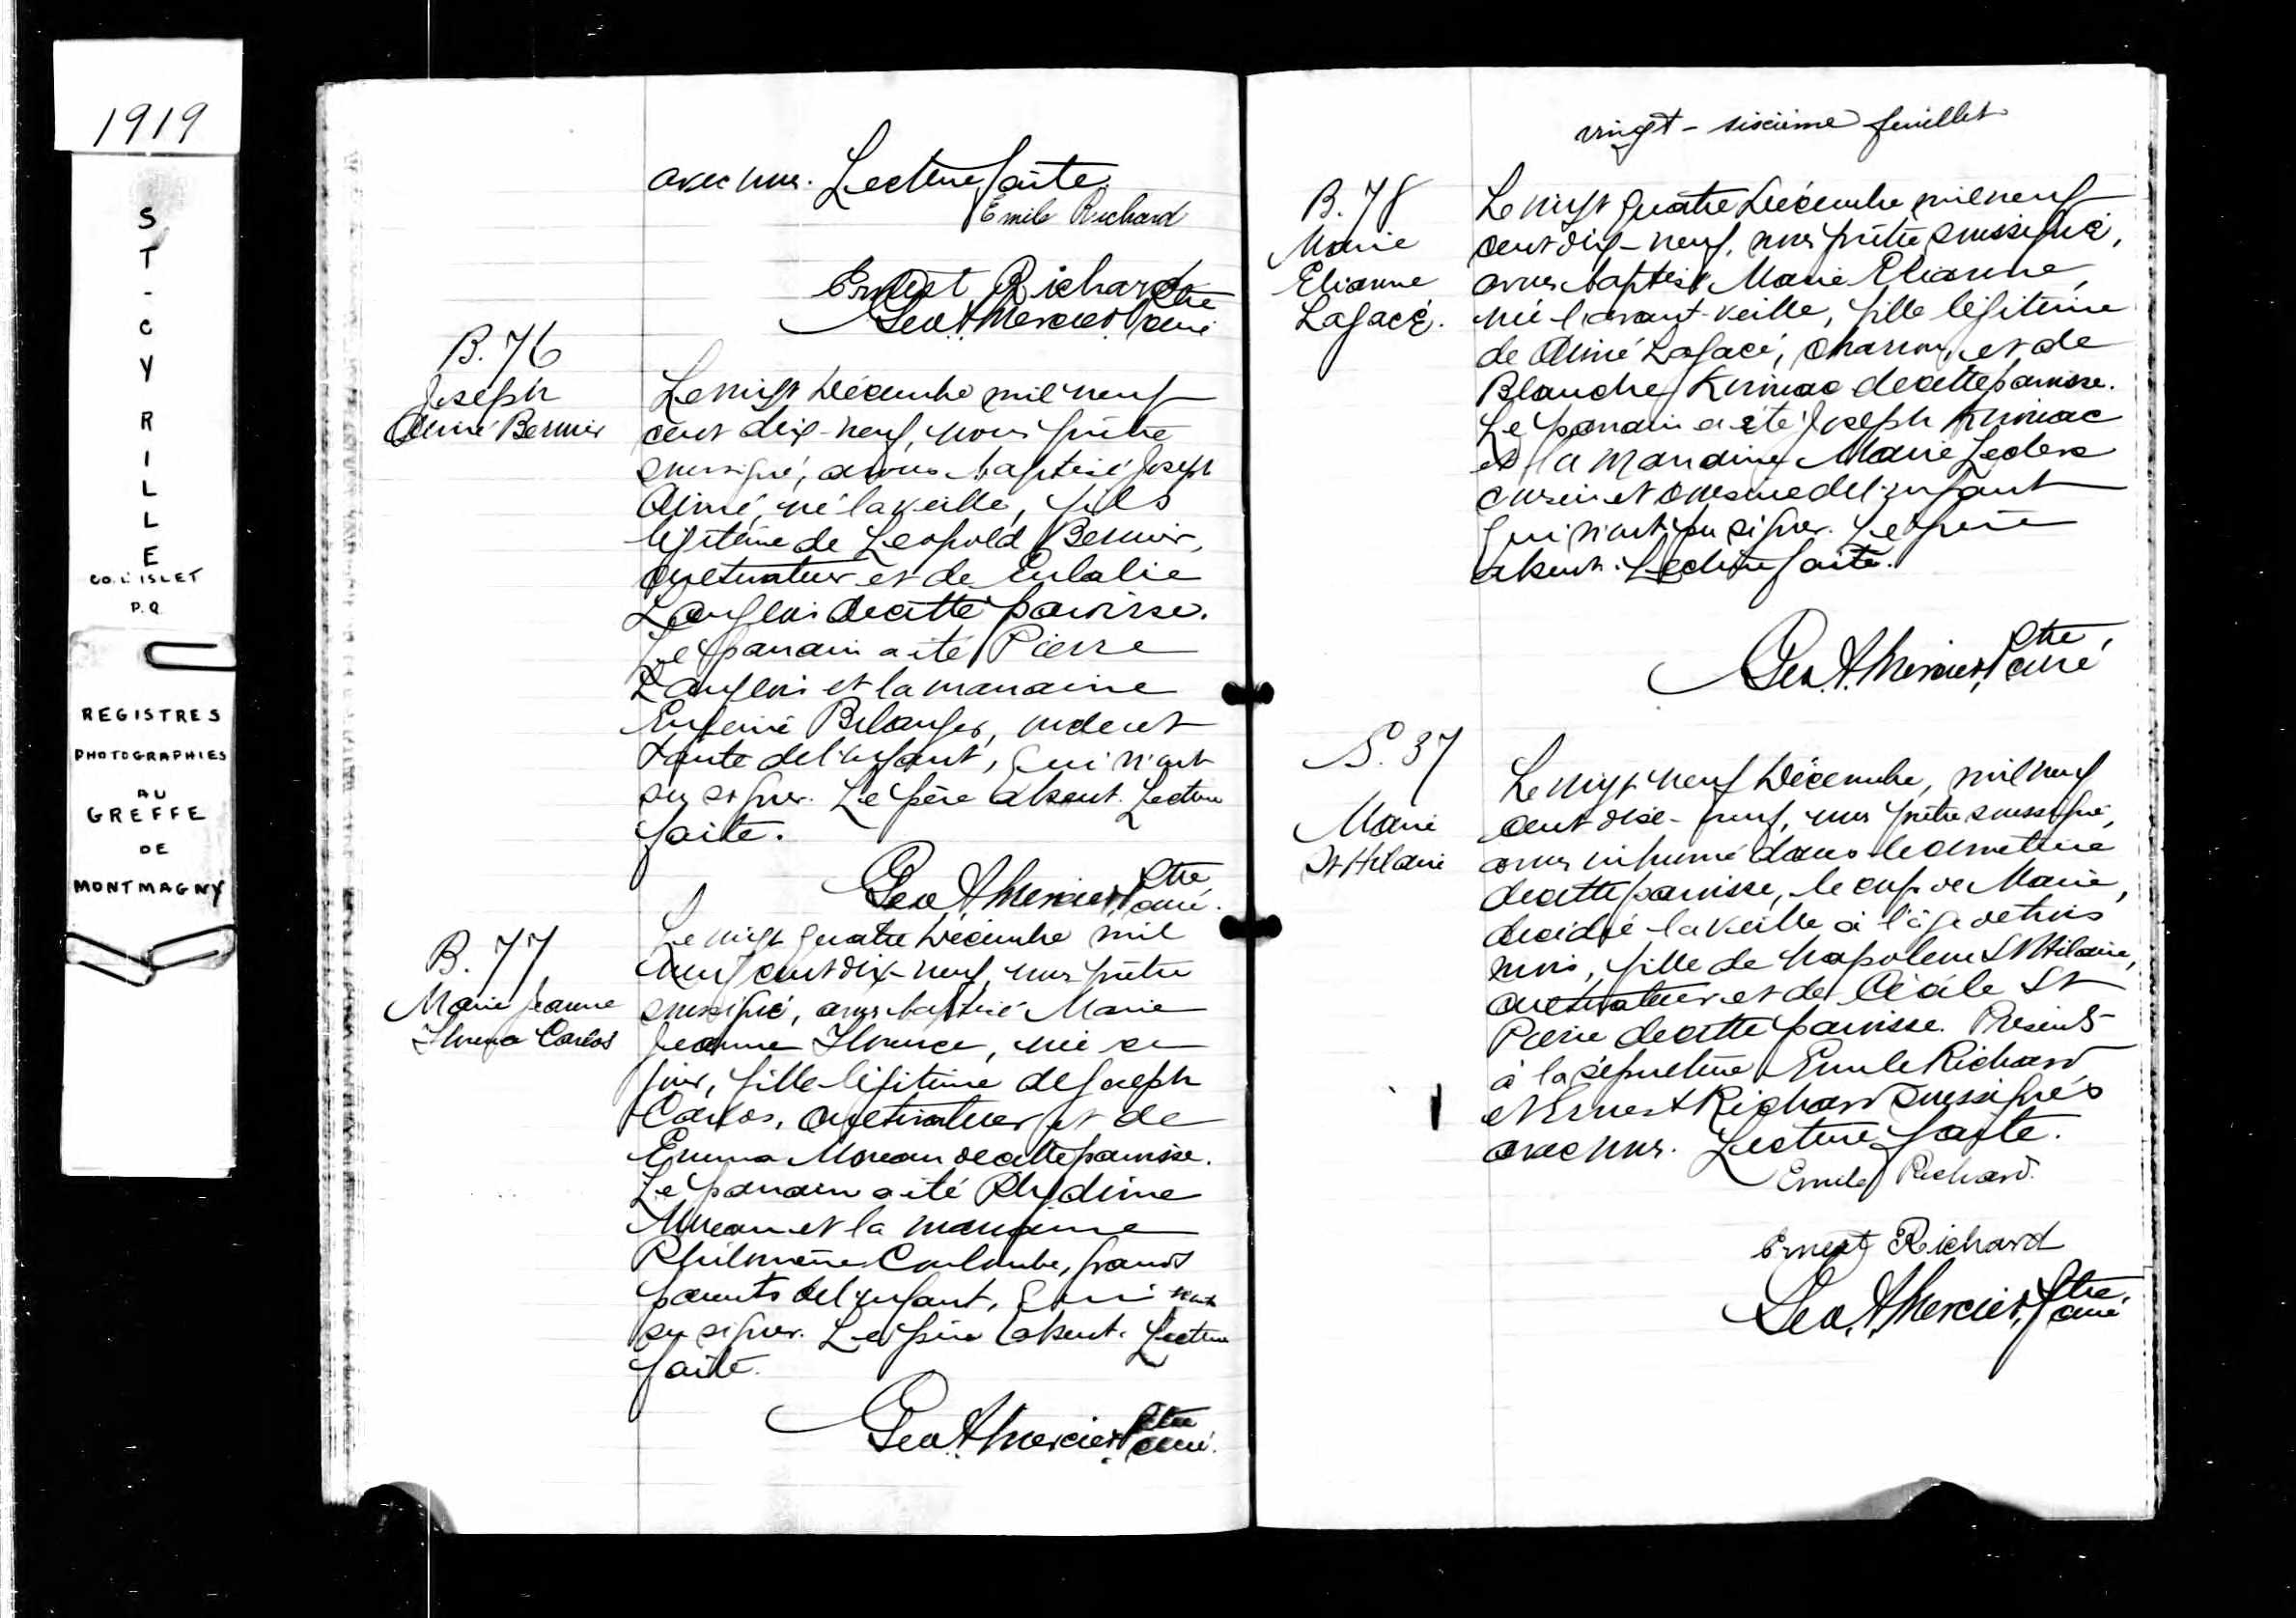 1919
S
T
-
C
Y
R
I
L
L
E
CO. L'ISLET
P.Q
REGISTRES
PHOTOGRAPHIES
AU
GREFFE
DE
MONTMAGNY
avec nous. Lecture faite.
Emile Richard
Ernest Richard
Geo. A. Mercier, Ptre curé
B. 76
Joseph
Aimé Bernier
Le vingt Décembre mil neuf
cent dix-neuf, nous prêtre
soussigné, avons baptisé Joseph
Aimé, né la veille, fils
légitime de Léopold Bernier,
cultivateur et de Eulalie
Langlois de cette paroisse.
Le parrain a été Pierre
Langlois et la marraine
Eugénie Bélanger, oncle et
tante de l'enfant, qui n'ont
su signer. Le père absent. Lecture
faite.
Geo. A. Mercier, Ptre curé.
B. 77
Marie Jeanne
Carlos
Le vingt quatre Décembre mil
neuf cent dix-neuf, nous prêtre
soussigné, avons baptisé Marie
Jeanne, née ce
jour, fille légitime de Joseph
Carlos, cultivateur et de
Emma Moreau de cette paroisse.
Le parrain a été
Moreau et la marraine
Philomène Coulombe, grands
parents de l'enfant, qui n'ont
su signer. Le père absent. Lecture
faite.
Geo. A. Mercier, Ptre curé.
vingt-sixième feuillet
B. 78
Marie
Elianne
Lagacé.
Le vingt quatre Décembre mil neuf
cent dix-neuf, nous prêtre soussigné,
avons baptisé Marie Elianne,
née l'avant-veille, fille légitime
de Aimé Lagacé, charron, et de
Blanche Kirouac de cette paroisse.
Le parrain a été Joseph Kirouac
et la marraine Marie Leclerc
cousin et cousine de l'enfant
qui n'ont pu signer. Le père
absent. Lecture faite.
Geo. A. Mercier, Ptre, curé
S. 37
Marie
St Hilaire
Le vingt neuf Décembre, mil neuf
cent dix-neuf, nous prêtre soussigné,
avons inhumé dans le cimetière
de cette paroisse, le corps de Marie,
décédée la veille à l'âge de trois
mois, fille de Napoléon St Hilaire,
cultivateur et de Cécile St
Pierre de cette paroisse. Présents
à la sépulture Emile Richard
et Ernest Richard soussignés
avec nous. Lecture faite.
Emile Richard.
Ernest Richard
Geo. A. Mercier, Ptre, curé